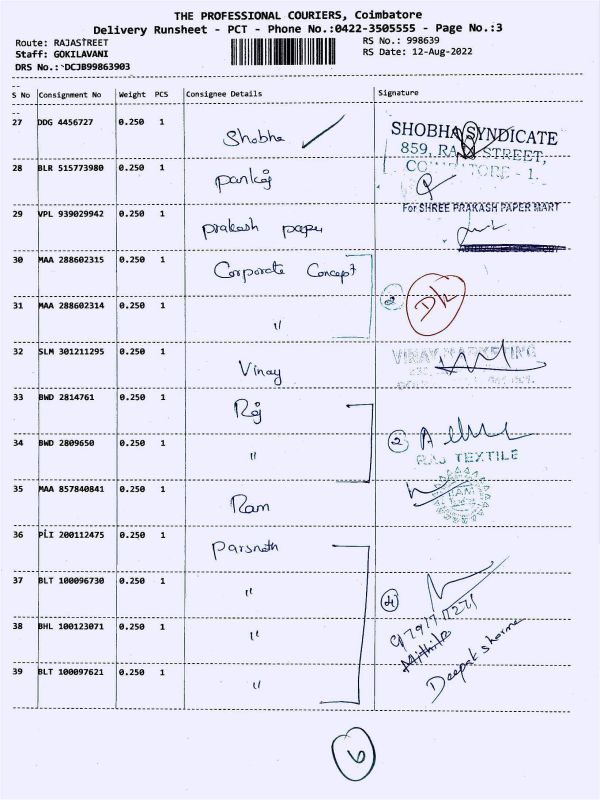 THE PROFESSIONAL COURIERS, Coimbatore
Delivery Runsheet - PCT - Phone No.:0422-3505555 - Page No.:3
Route: RAJASTREET
Staff: GOKILAVANI
DRS No.: DCJB99863903
RS No.: 998639
RS Date: 12-Aug-2022
S No Consignment No Weight PCS Consignee Details Signature
27 DDG 4456727 0.250 1 Shobha
SHOBHA SYNDICATE
859, RAJ STREET,
28 BLR 515773980 0.250 1 pankaj
29 VPL 939029942 0.250 1 prakash paper
For SHREE PRAKASH PAPER MART
30 MAA 288602315 0.250 1 Corporate Concept
31 MAA 288602314 0.250 1 "
2
32 SLM 301211295 0.250 1 Vinay
VINAY MARKETING
33 BWD 2814761 0.250 1 Raj
34 BWD 2809650 0.250 1 "
2
RAJ TEXTILE
35 MAA 857840841 0.250 1 Ram
RAM
36 PLI 200112475 0.250 1 Parsnath
37 BLT 100096730 0.250 1 "
4
38 BHL 100123071 0.250 1 "
Mithila
39 BLT 100097621 0.250 1 "
Deepak sharma
6